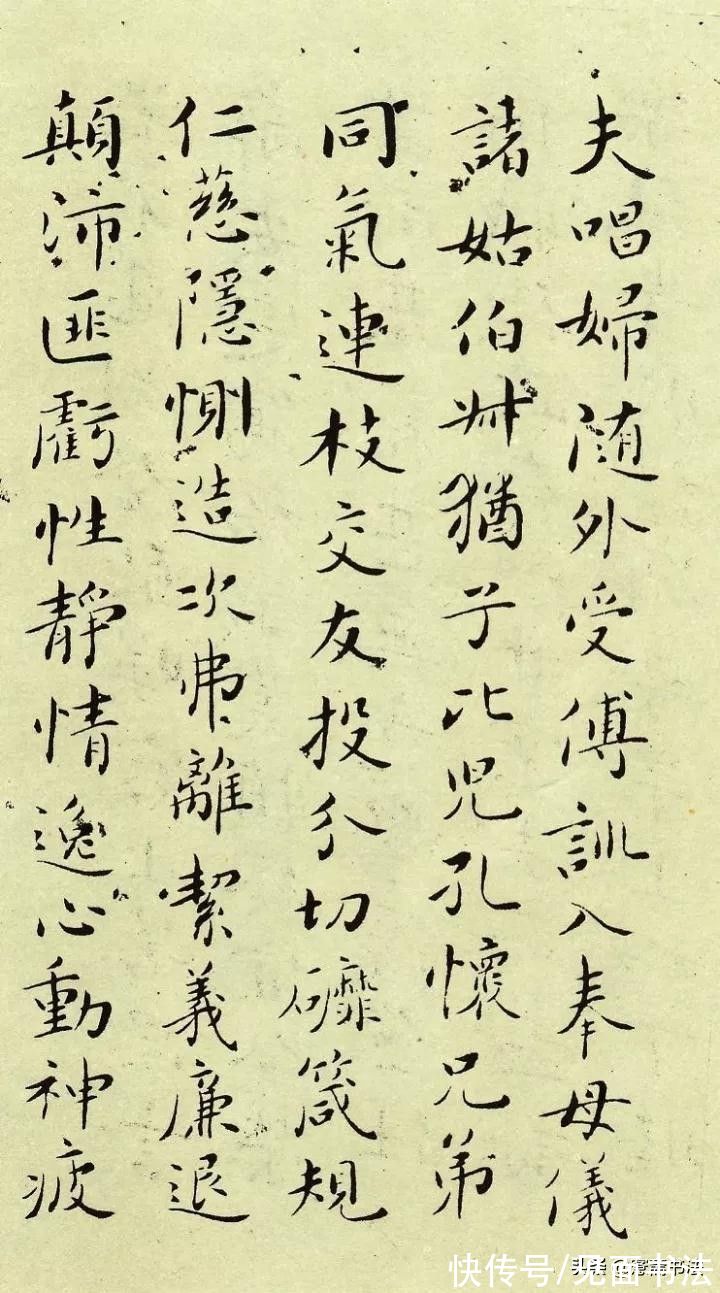 夫唱婦随外受傅訓入奉母儀
諸姑伯叔猶子比児孔懷兄弟
同氣連枝交友投分切䃺箴規
仁慈隱惻造次弗離絜義廉退
顛沛匪虧性靜情逸心動神疲
快传号/见面书法